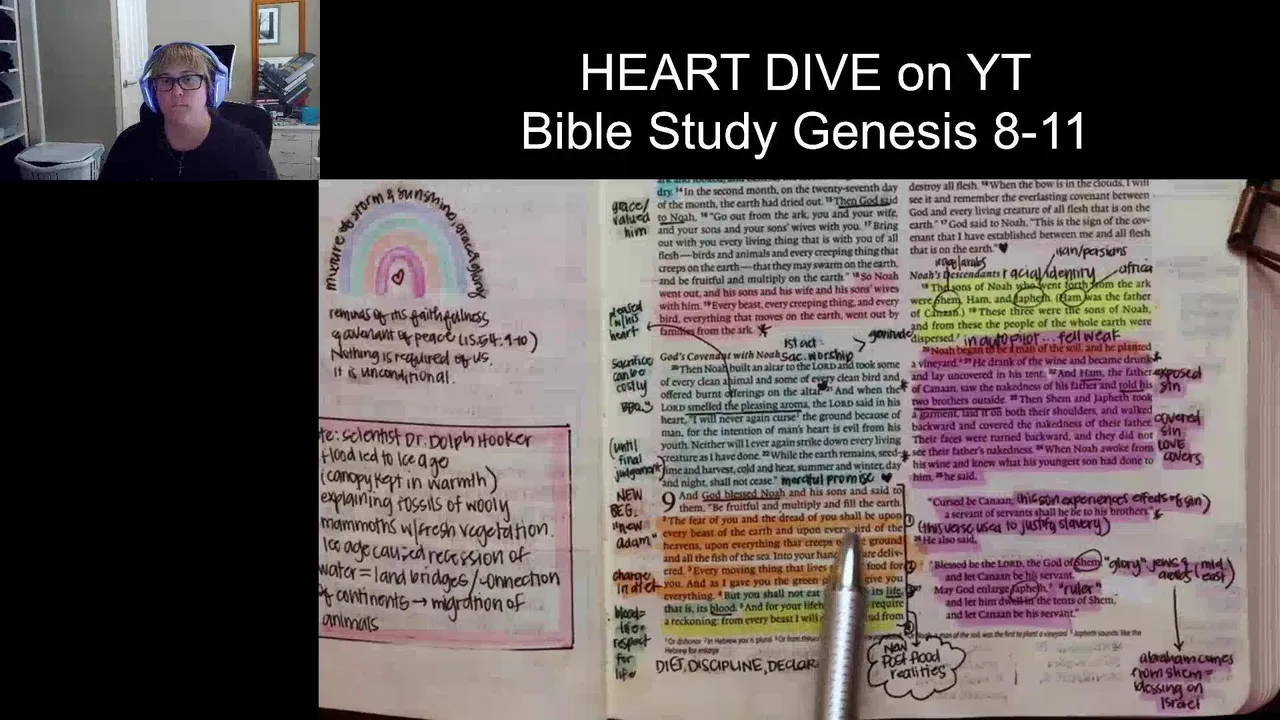 HEART DIVE on YT
Bible Study Genesis 8-11
mixture of storm & sunshine, grace & glory
reminds of his faithfulness
a covenant of peace (is. 54:9-10)
Nothing is required of us.
It is unconditional.
te: scientist Dr. Dolph Hooker
flood led to Ice age
(canopy kept in warmth)
explaining fossils of wooly
mammoths w/fresh vegetation.
Ice age caused recession of
water = land bridges/connection
of continents → migration of
animals
grace/
valued
him
pleased
in his
heart
sacrifice
can be
costly
BBQ
(until
final
judgement)
NEW
BEG.
"new
adam"
change
in diet
blood=
life=
respect
for
life
dry. 14 In the second month, on the twenty-seventh day
of the month, the earth had dried out. 15 Then God said
to Noah, 16 "Go out from the ark, you and your wife,
and your sons and your sons' wives with you. 17 Bring
out with you every living thing that is with you of all
flesh—birds and animals and every creeping thing that
creeps on the earth—that they may swarm on the earth,
and be fruitful and multiply on the earth." 18 So Noah
went out, and his sons and his wife and his sons' wives
with him. 19 Every beast, every creeping thing, and every
bird, everything that moves on the earth, went out by
families from the ark.
1st act: > gratitude
God's Covenant with Noah sac. worship
20 Then Noah built an altar to the LORD and took some
of every clean animal and some of every clean bird and
offered burnt offerings on the altar. 21 And when the
LORD smelled the pleasing aroma, the LORD said in his
heart, "I will never again curse the ground because of
man, for the intention of man's heart is evil from his
youth. Neither will I ever again strike down every living
creature as I have done. 22 While the earth remains, seed-
time and harvest, cold and heat, summer and winter, day
and night, shall not cease." merciful promise ♥
9 And God blessed Noah and his sons and said to
them, "Be fruitful and multiply and fill the earth.
2 The fear of you and the dread of you shall be upon
every beast of the earth and upon every bird of the
heavens, upon everything that creeps ground
and all the fish of the sea. Into your hand are deliv-
ered. 3 Every moving thing that lives food for
you. And as I gave you the green give you
everything. 4 But you shall not eat its life,
that is, its blood. 5 And for your lifeb require
a reckoning: from every beast I will and from
DIET, DISCIPLINE, DECLAR
New
Post flood
realities
destroy all flesh. 16 When the bow is in the clouds, I will
see it and remember the everlasting covenant between
God and every living creature of all flesh that is on the
earth." 17 God said to Noah, "This is the sign of the cov-
enant that I have established between me and all flesh
that is on the earth." ♥
iraq/arabs iran/persians
Noah's Descendants racial identity africa
18 The sons of Noah who went forth from the ark
were Shem, Ham, and Japheth. (Ham was the father
of Canaan.) 19 These three were the sons of Noah,
and from these the people of the whole earth were
dispersed. in autopilot... fell weak
20 Noah began to be a man of the soil, and he planted
a vineyard. 21 He drank of the wine and became drunk
and lay uncovered in his tent. 22 And Ham, the father
of Canaan, saw the nakedness of his father and told his
two brothers outside. 23 Then Shem and Japheth took
a garment, laid it on both their shoulders, and walked
backward and covered the nakedness of their father.
Their faces were turned backward, and they did not
see their father's nakedness. 24 When Noah awoke from
his wine and knew what his youngest son had done to
him, 25 he said,
exposed
sin
covered
sin
LOVE
covers
"Cursed be Canaan; (his son experiences effects of sin)
a servant of servants shall he be to his brothers."
(this verse used to justify slavery)
26 He also said,
"Blessed be the LORD, the God of Shem; "glory" jews & arabs (mid. east)
and let Canaan be his servant.
27 May God enlarge Japheth, "ruler"
and let him dwell in the tents of Shem,
and let Canaan be his servant."
abraham comes
from shem =
blessing on
Israel